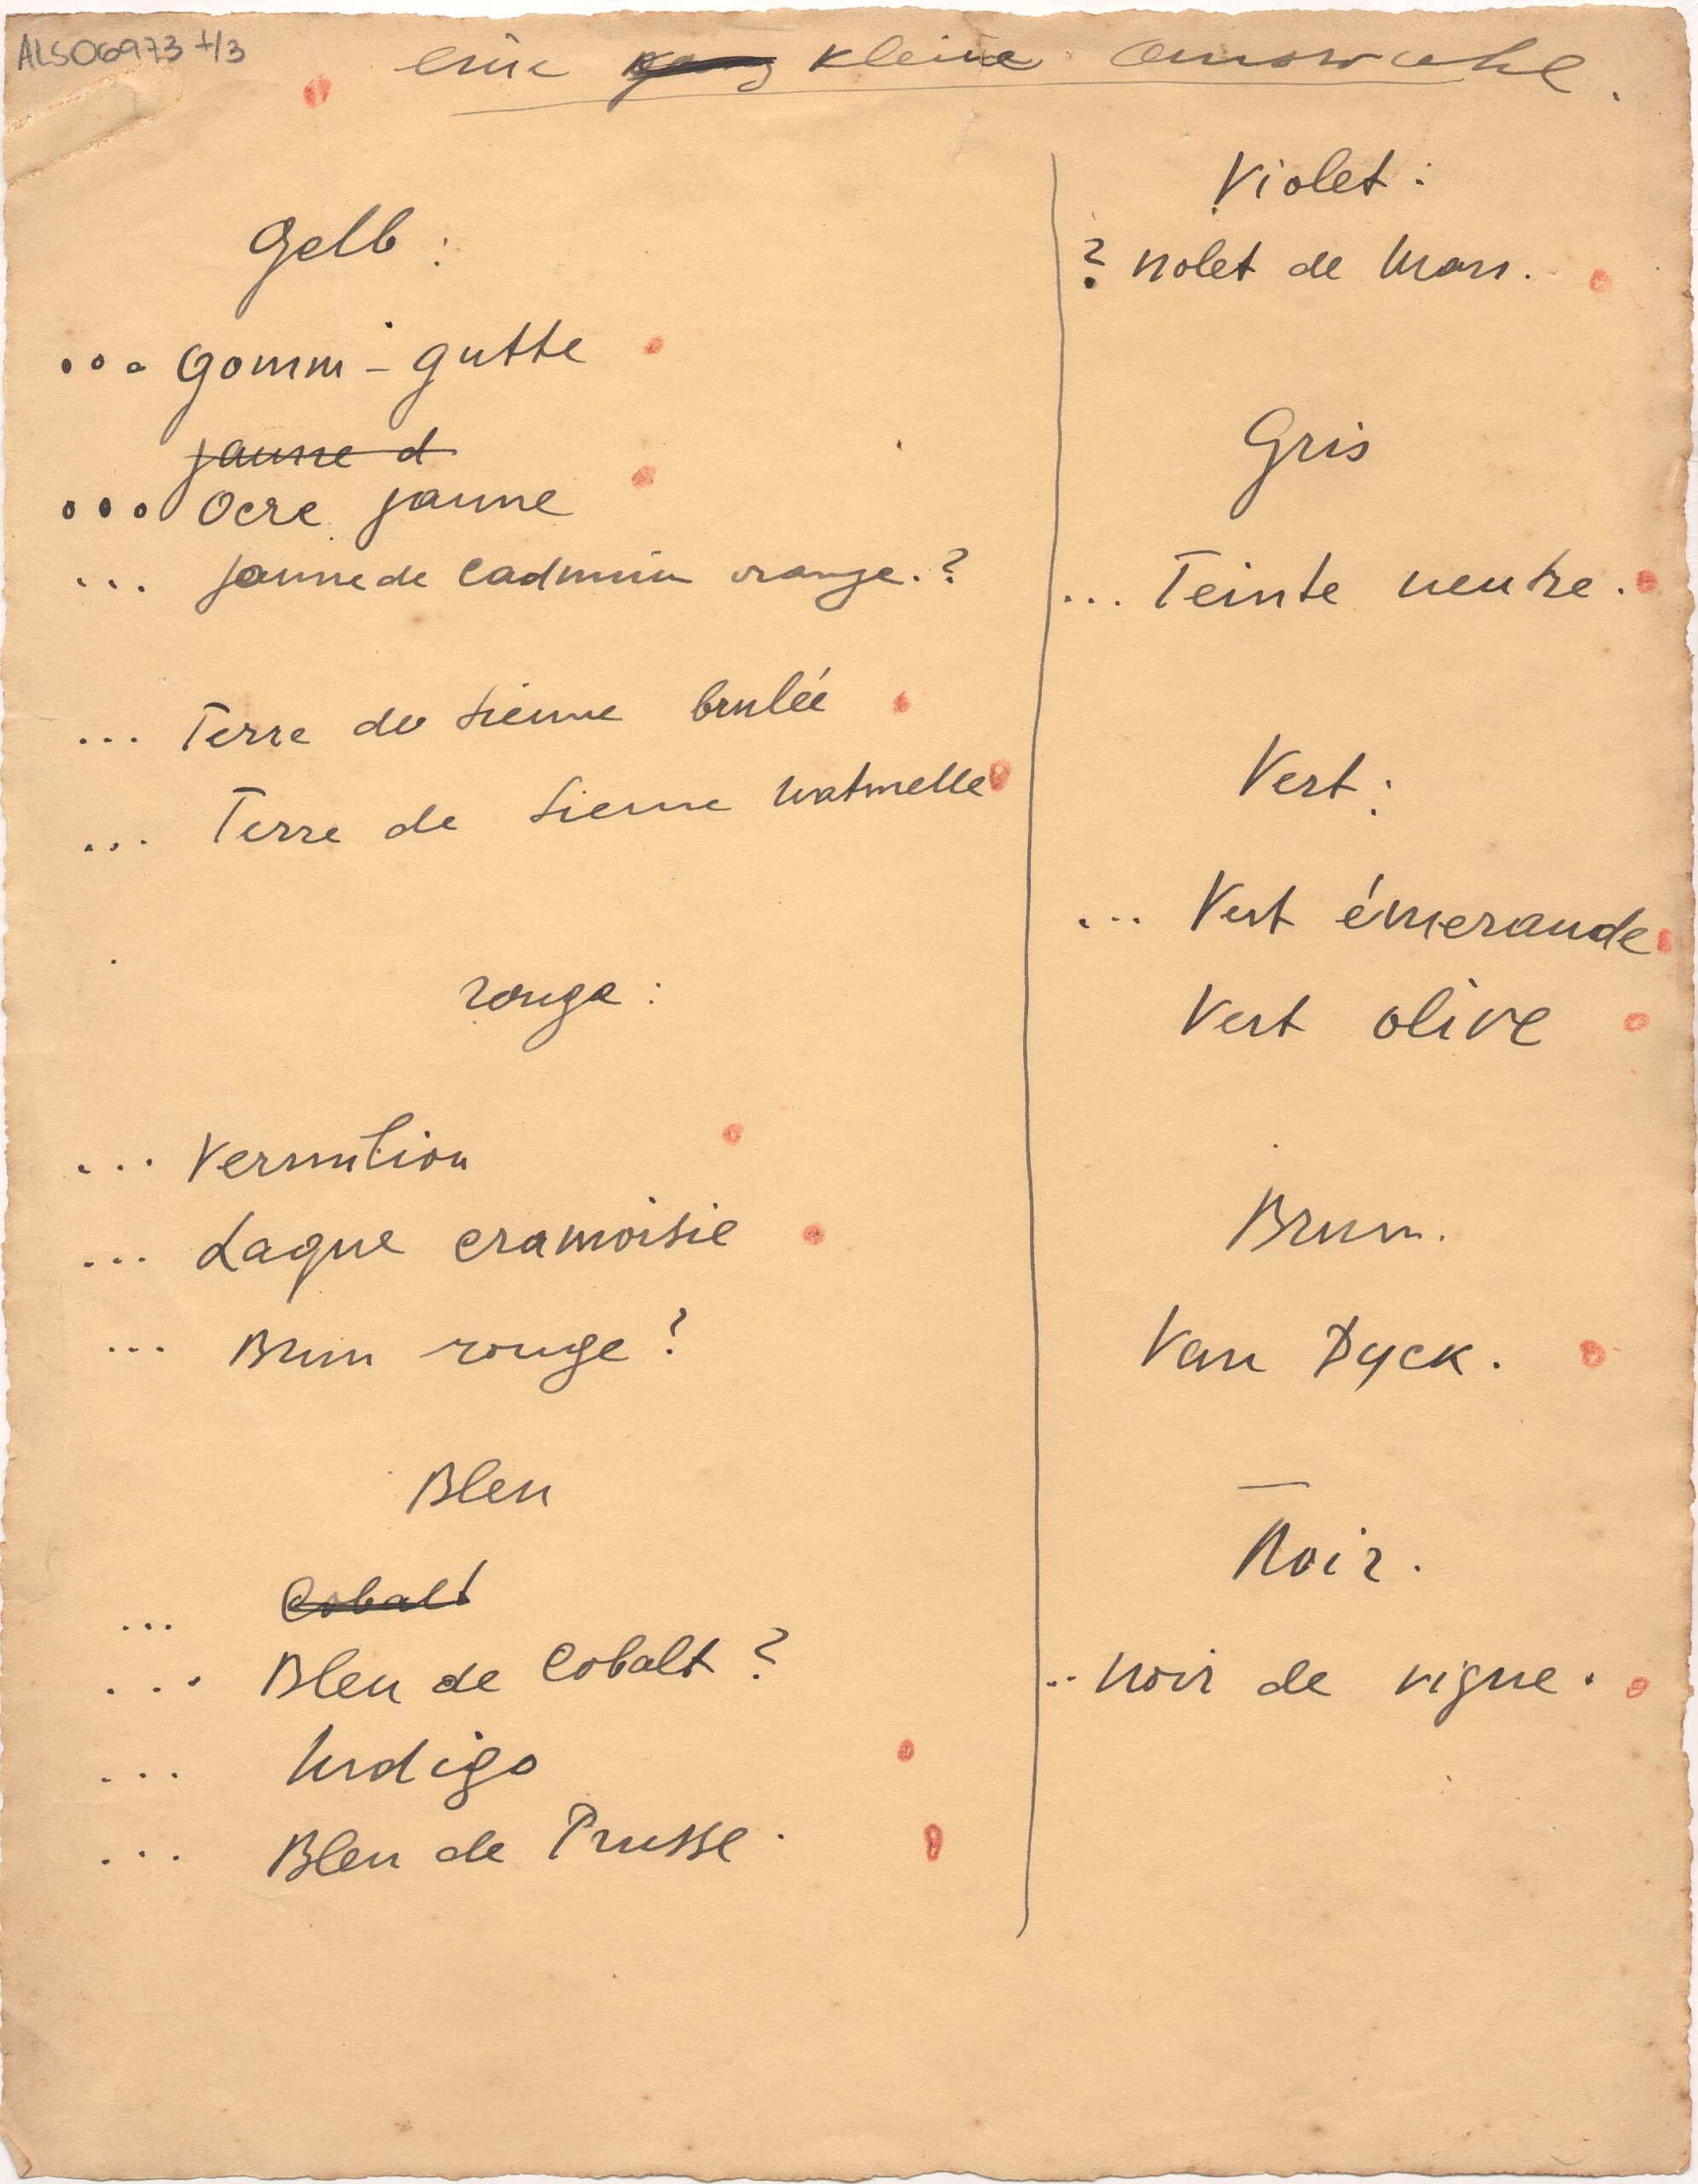 ALS06973 +/3
eine ganz kleine Auswahl.
Gelb:
... Gomm-gutte
jaune d
... Ocre jaune
... jaune de Cadmium orange.?
... Terre de Sienne brulée
... Terre de Sienne naturelle
rouge:
... Vermilion
... Laque cramoisie
... Brun rouge?
Bleu
... Cobalt
... Bleu de Cobalt?
... Indigo
... Bleu de Prusse.
Violet:
? violet de Mars.
Gris
... Teinte neutre.
Vert:
... Vert émeraude
Vert olive
Brun.
Van Dyck.
Noir.
.. noir de vigne.